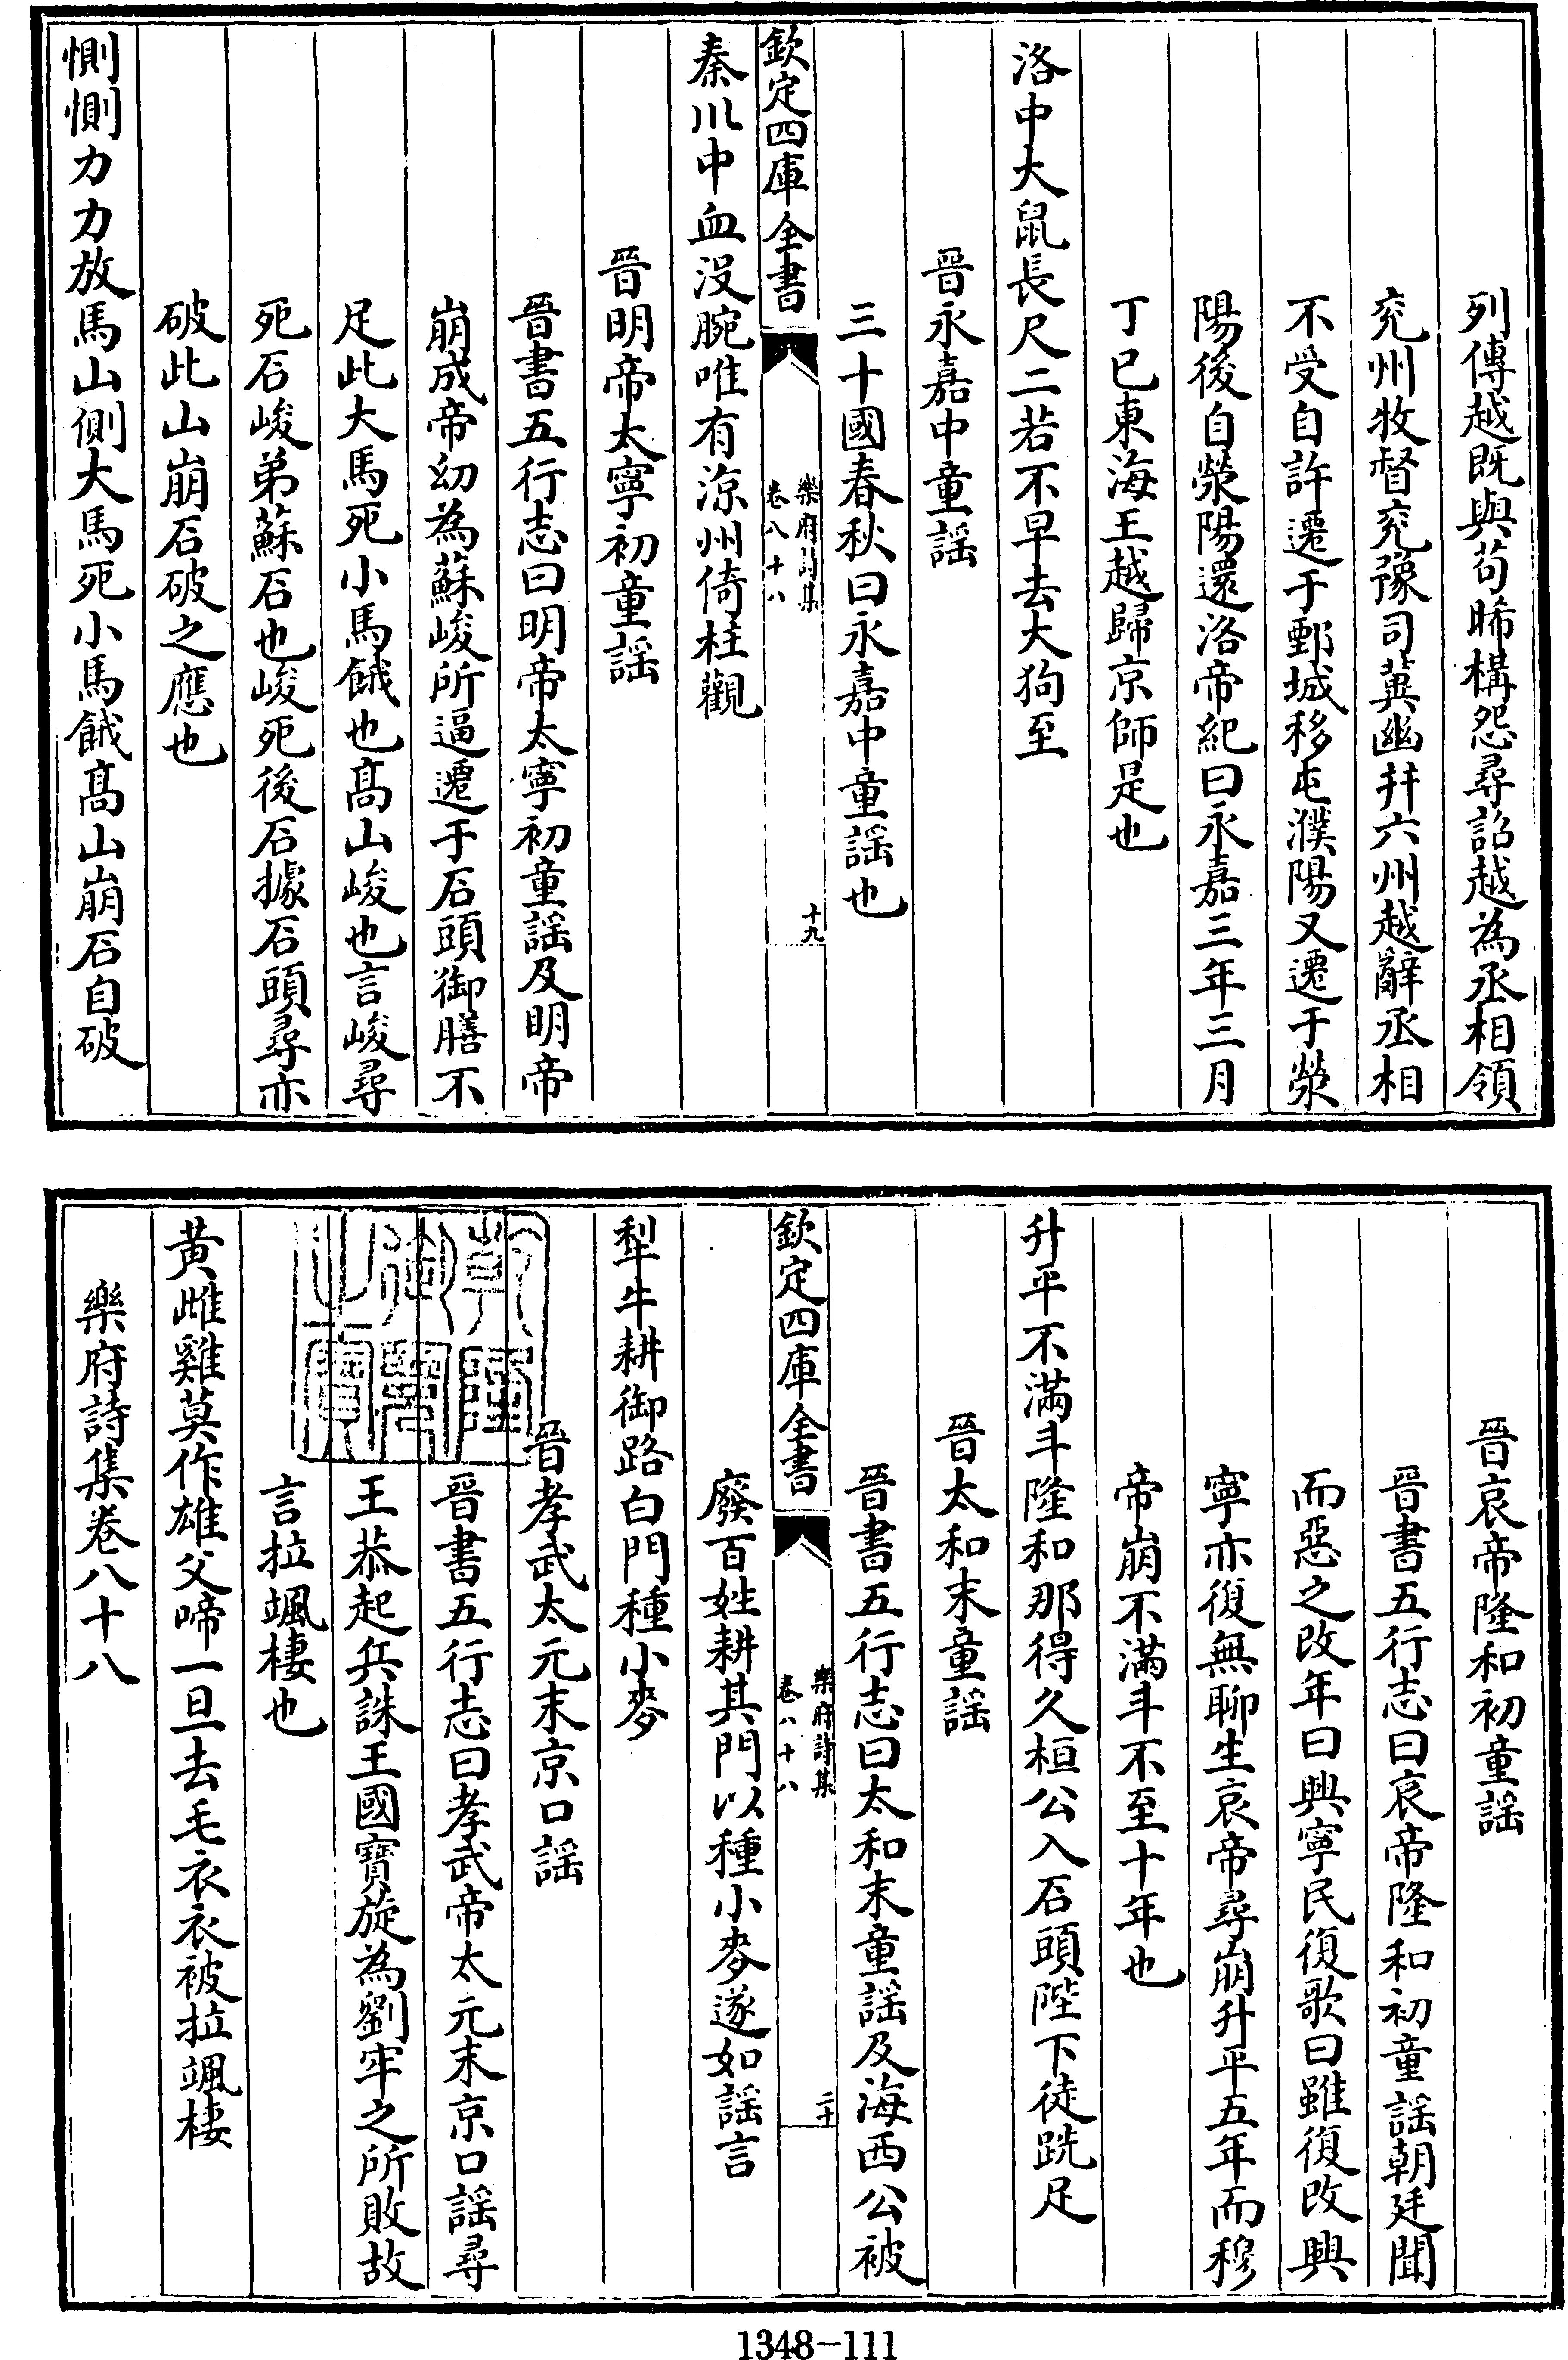 列傳越既與苟晞構怨尋詔越為丞相領
兖州牧督兖豫司冀幽并六州越辭丞相
不受自許遷于鄄城移屯濮陽又遷于滎
陽後自滎陽還洛帝紀曰永嘉三年三月
丁巳東海王越歸京師是也
洛中大鼠長尺二若不早去大狗至
晉永嘉中童謡
三十國春秋曰永嘉中童謡也
欽定四庫全書
樂府詩集
卷八十八
十九
秦川中血没腕唯有涼州倚柱觀
晉明帝太寧初童謡
晉書五行志曰明帝太寧初童謡及明帝
崩成帝幼為蘇峻所逼遷于石頭御膳不
足此大馬死小馬餓也髙山峻也言峻尋
死石峻弟蘇石也峻死後石據石頭尋亦
破此山崩石破之應也
惻惻力力放馬山側大馬死小馬餓髙山崩石自破
晉哀帝隆和初童謡
晉書五行志曰哀帝隆和初童謡朝廷聞
而惡之改年曰興寧民復歌曰雖復改興
寧亦復無聊生哀帝尋崩升平五年而穆
帝崩不滿斗不至十年也
升平不滿斗隆和那得久桓公入石頭陛下徒跣足
晉太和末童謡
晉書五行志曰太和末童謡及海西公被
欽定四庫全書
樂府詩集
卷八十八
二十
廢百姓耕其門以種小麥遂如謡言
犁牛耕御路白門種小麥
晉孝武太元末京口謡
晉書五行志曰孝武帝太元末京口謡尋
王恭起兵誅王國寶旋為劉牢之所敗故
言拉颯棲也
黄雌雞莫作雄父啼一旦去毛衣衣被拉颯棲
樂府詩集卷八十八
1348-111